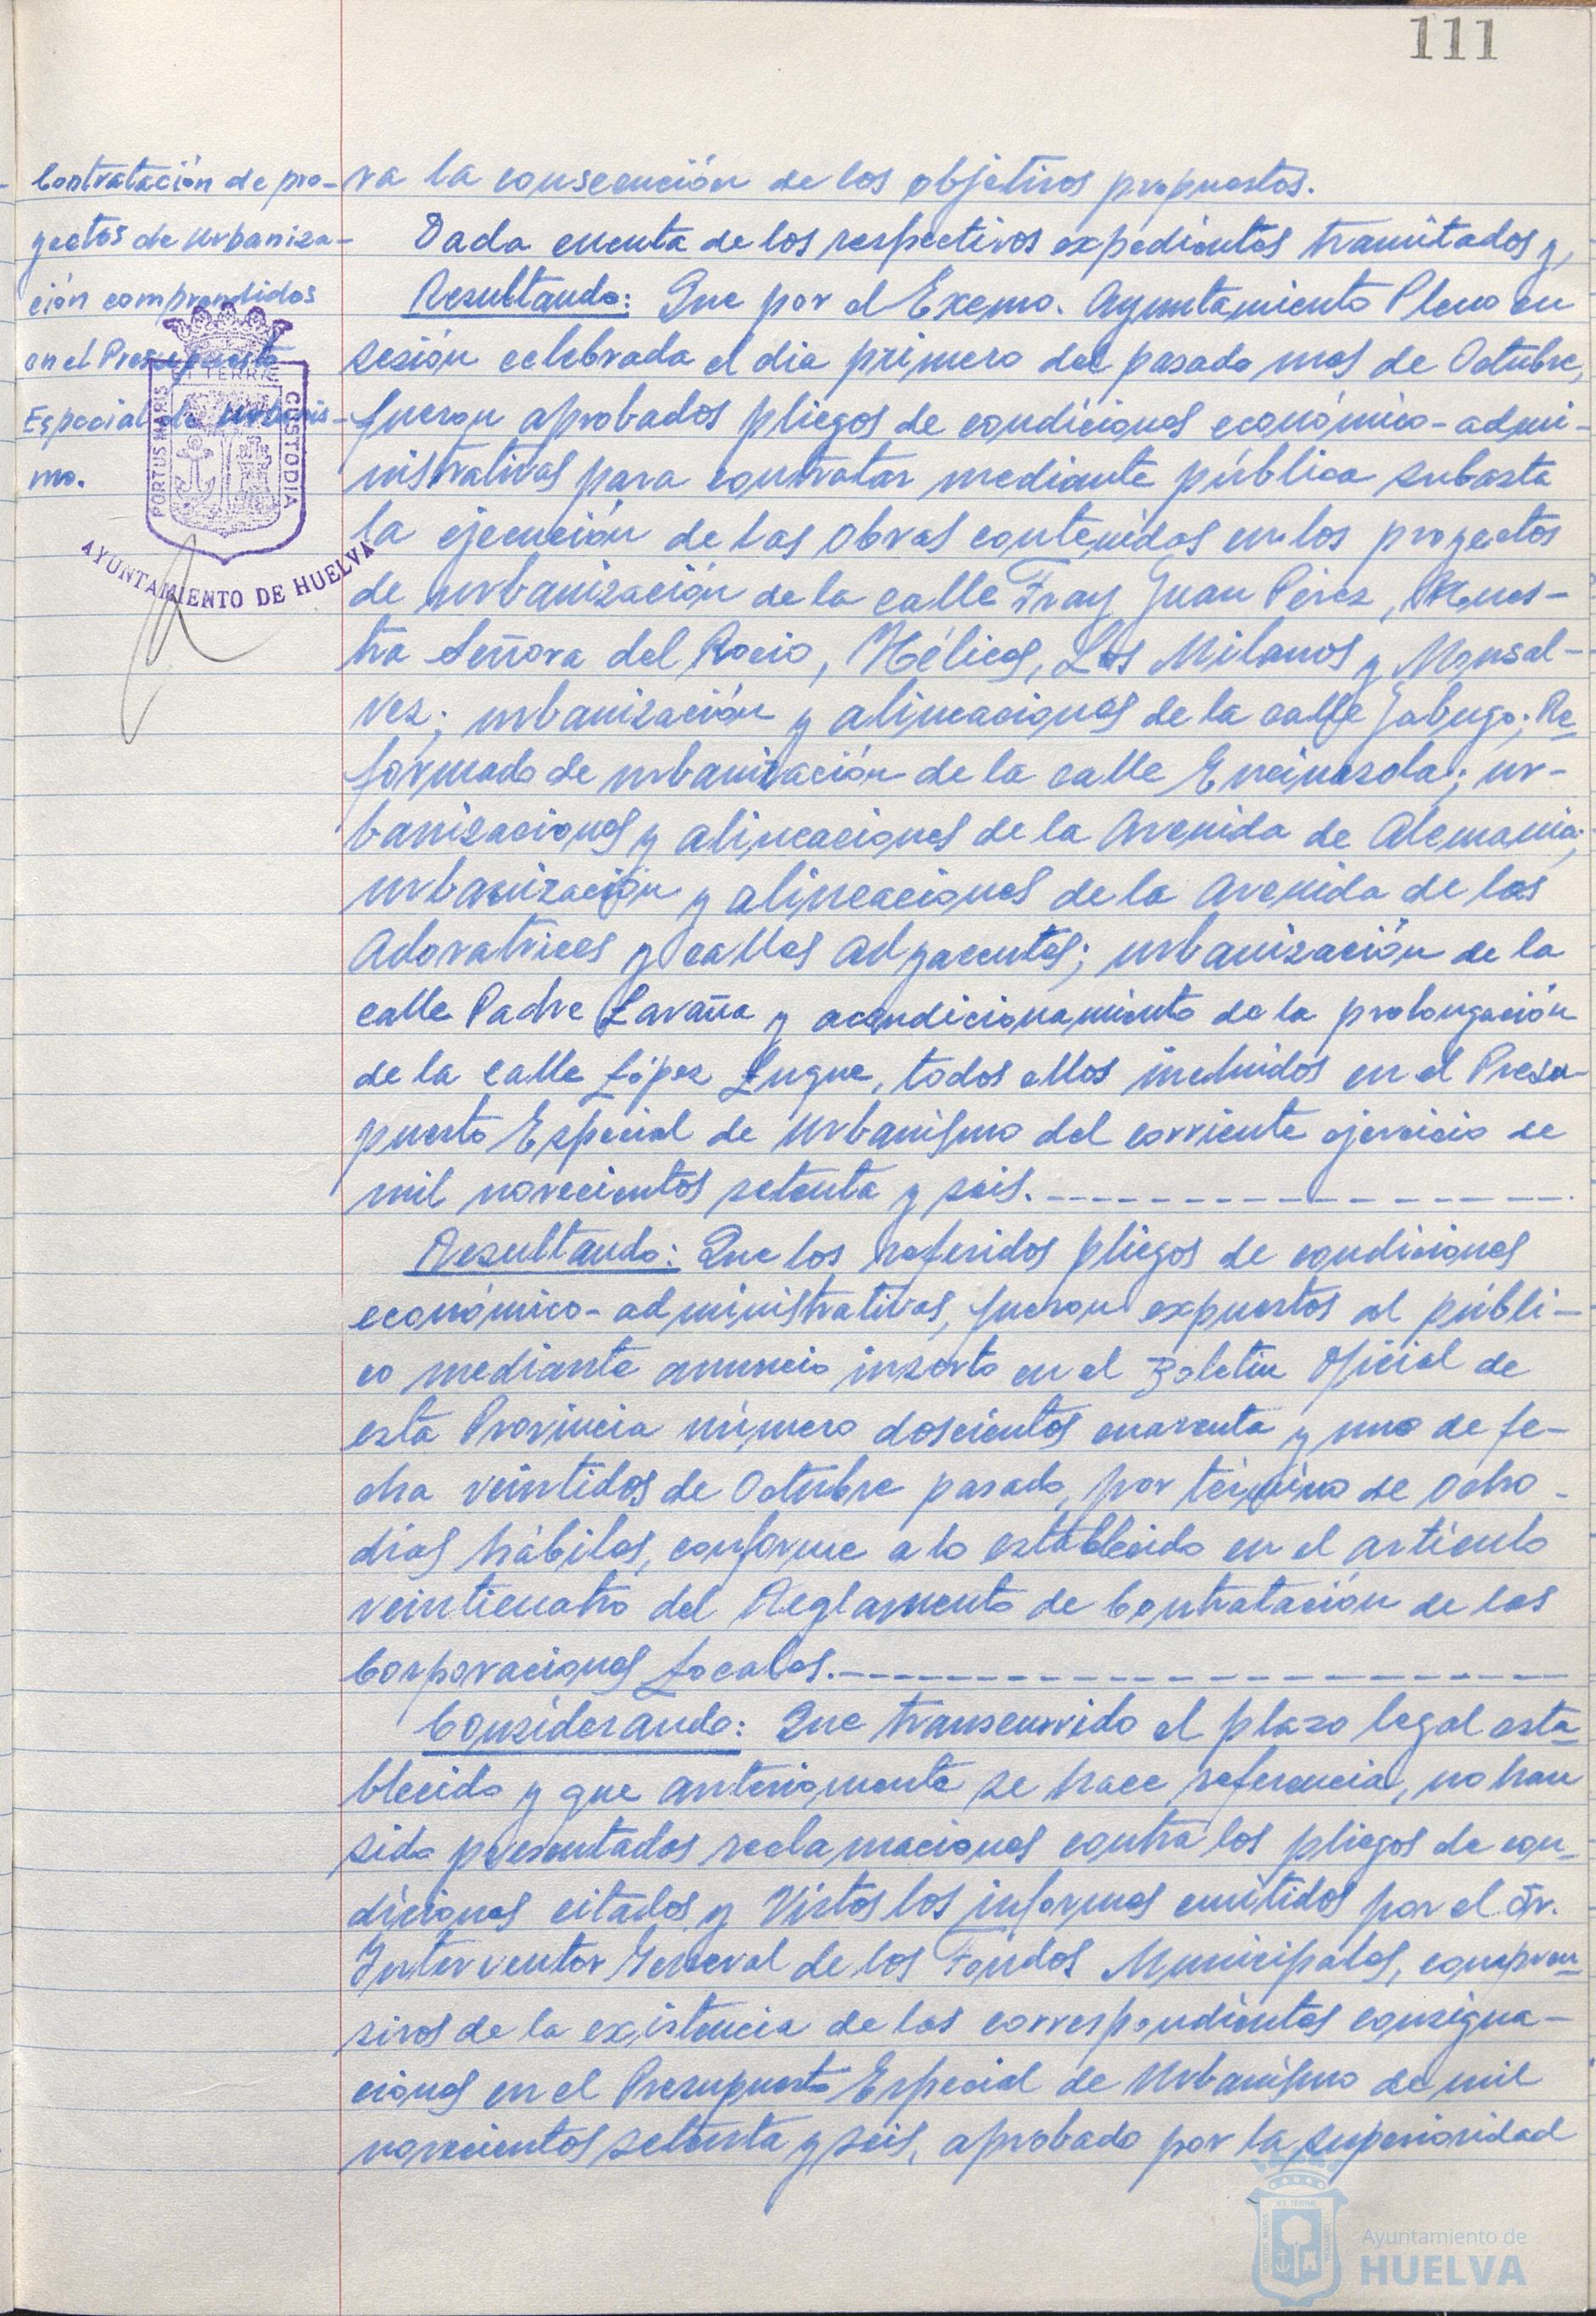 111
Contratación de pro-
yectos de Urbaniza-
ción comprendidos
en el Presupuesto
Especial de Urbanis-
mo.
PORTUS MARIS
ET TERRE
CUSTODIA
AYUNTAMIENTO DE HUELVA
ra la consecución de los objetivos propuestos.
Dada cuenta de los respectivos expedientes tramitados y,
Resultando: Que por el Excmo. Ayuntamiento Pleno en
sesión celebrada el dia primero del pasado mes de Octubre,
fueron aprobados pliegos de condiciones económico-admi-
nistrativas para contratar mediante pública subasta
la ejecución de las obras contenidas en los proyectos
de urbanización de la calle Fray Juan Pérez, Nues-
tra Señora del Rocio, Hélices, Los Milanos y Monsal-
vez; urbanización y alineaciones de la calle Jabugo; Re-
formado de urbanización de la calle Encinasola; ur-
banizaciones y alineaciones de la Avenida de Alemania;
urbanización y alineaciones de la Avenida de las
Adoratrices y calles adyacentes; urbanización de la
calle Padre Laraña y acondicionamiento de la prolongación
de la calle López Luque, todos ellos incluidos en el Presu-
puesto Especial de Urbanismo del corriente ejercicio de
mil novecientos setenta y seis.
Resultando: Que los referidos pliegos de condiciones
económico-administrativas, fueron expuestos al públi-
co mediante anuncio inserto en el Boletin Oficial de
esta Provincia número doscientos cuarenta y uno de fe-
cha veintidos de Octubre pasado, por término de ocho
dias hábiles, conforme a lo establecido en el artículo
veinticuatro del Reglamento de Contratación de las
Corporaciones Locales.
Considerando: Que transcurrido el plazo legal esta-
blecido y que anteriomente se hace referencia, no han
sido presentadas reclamaciones contra los pliegos de con-
diciones citados y Vistos los informes emitidos por el Sr.
Interventor General de los Fondos Municipales, compren-
sivos de la existencia de las correspondientes consigna-
ciones en el Presupuesto Especial de Urbanismo de mil
novecientos setenta y seis, aprobado por la superioridad
Ayuntamiento de
HUELVA